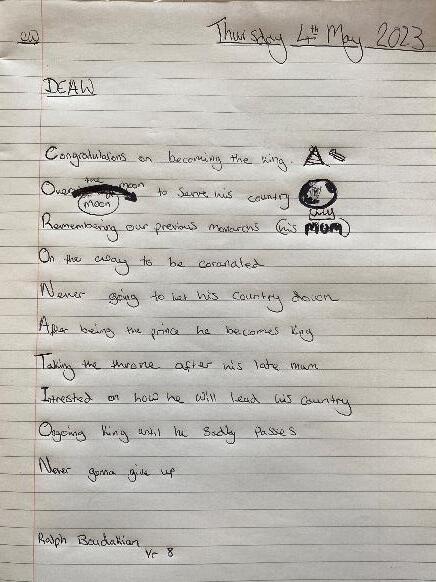 CW
Thursday 4th May 2023
DEAW
Congratulations on becoming the king.
Over the moon to serve his country
moon
Remembering our previous monarchs (his MUM)
On the way to be coranated
Never going to let his country down
After being the prince he becomes king
Taking the throne after his late mum
Intrested on how he will lead his country
Ongoing king until he sadly passes
Never gonna give up
Ralph Boudakian
Yr 8